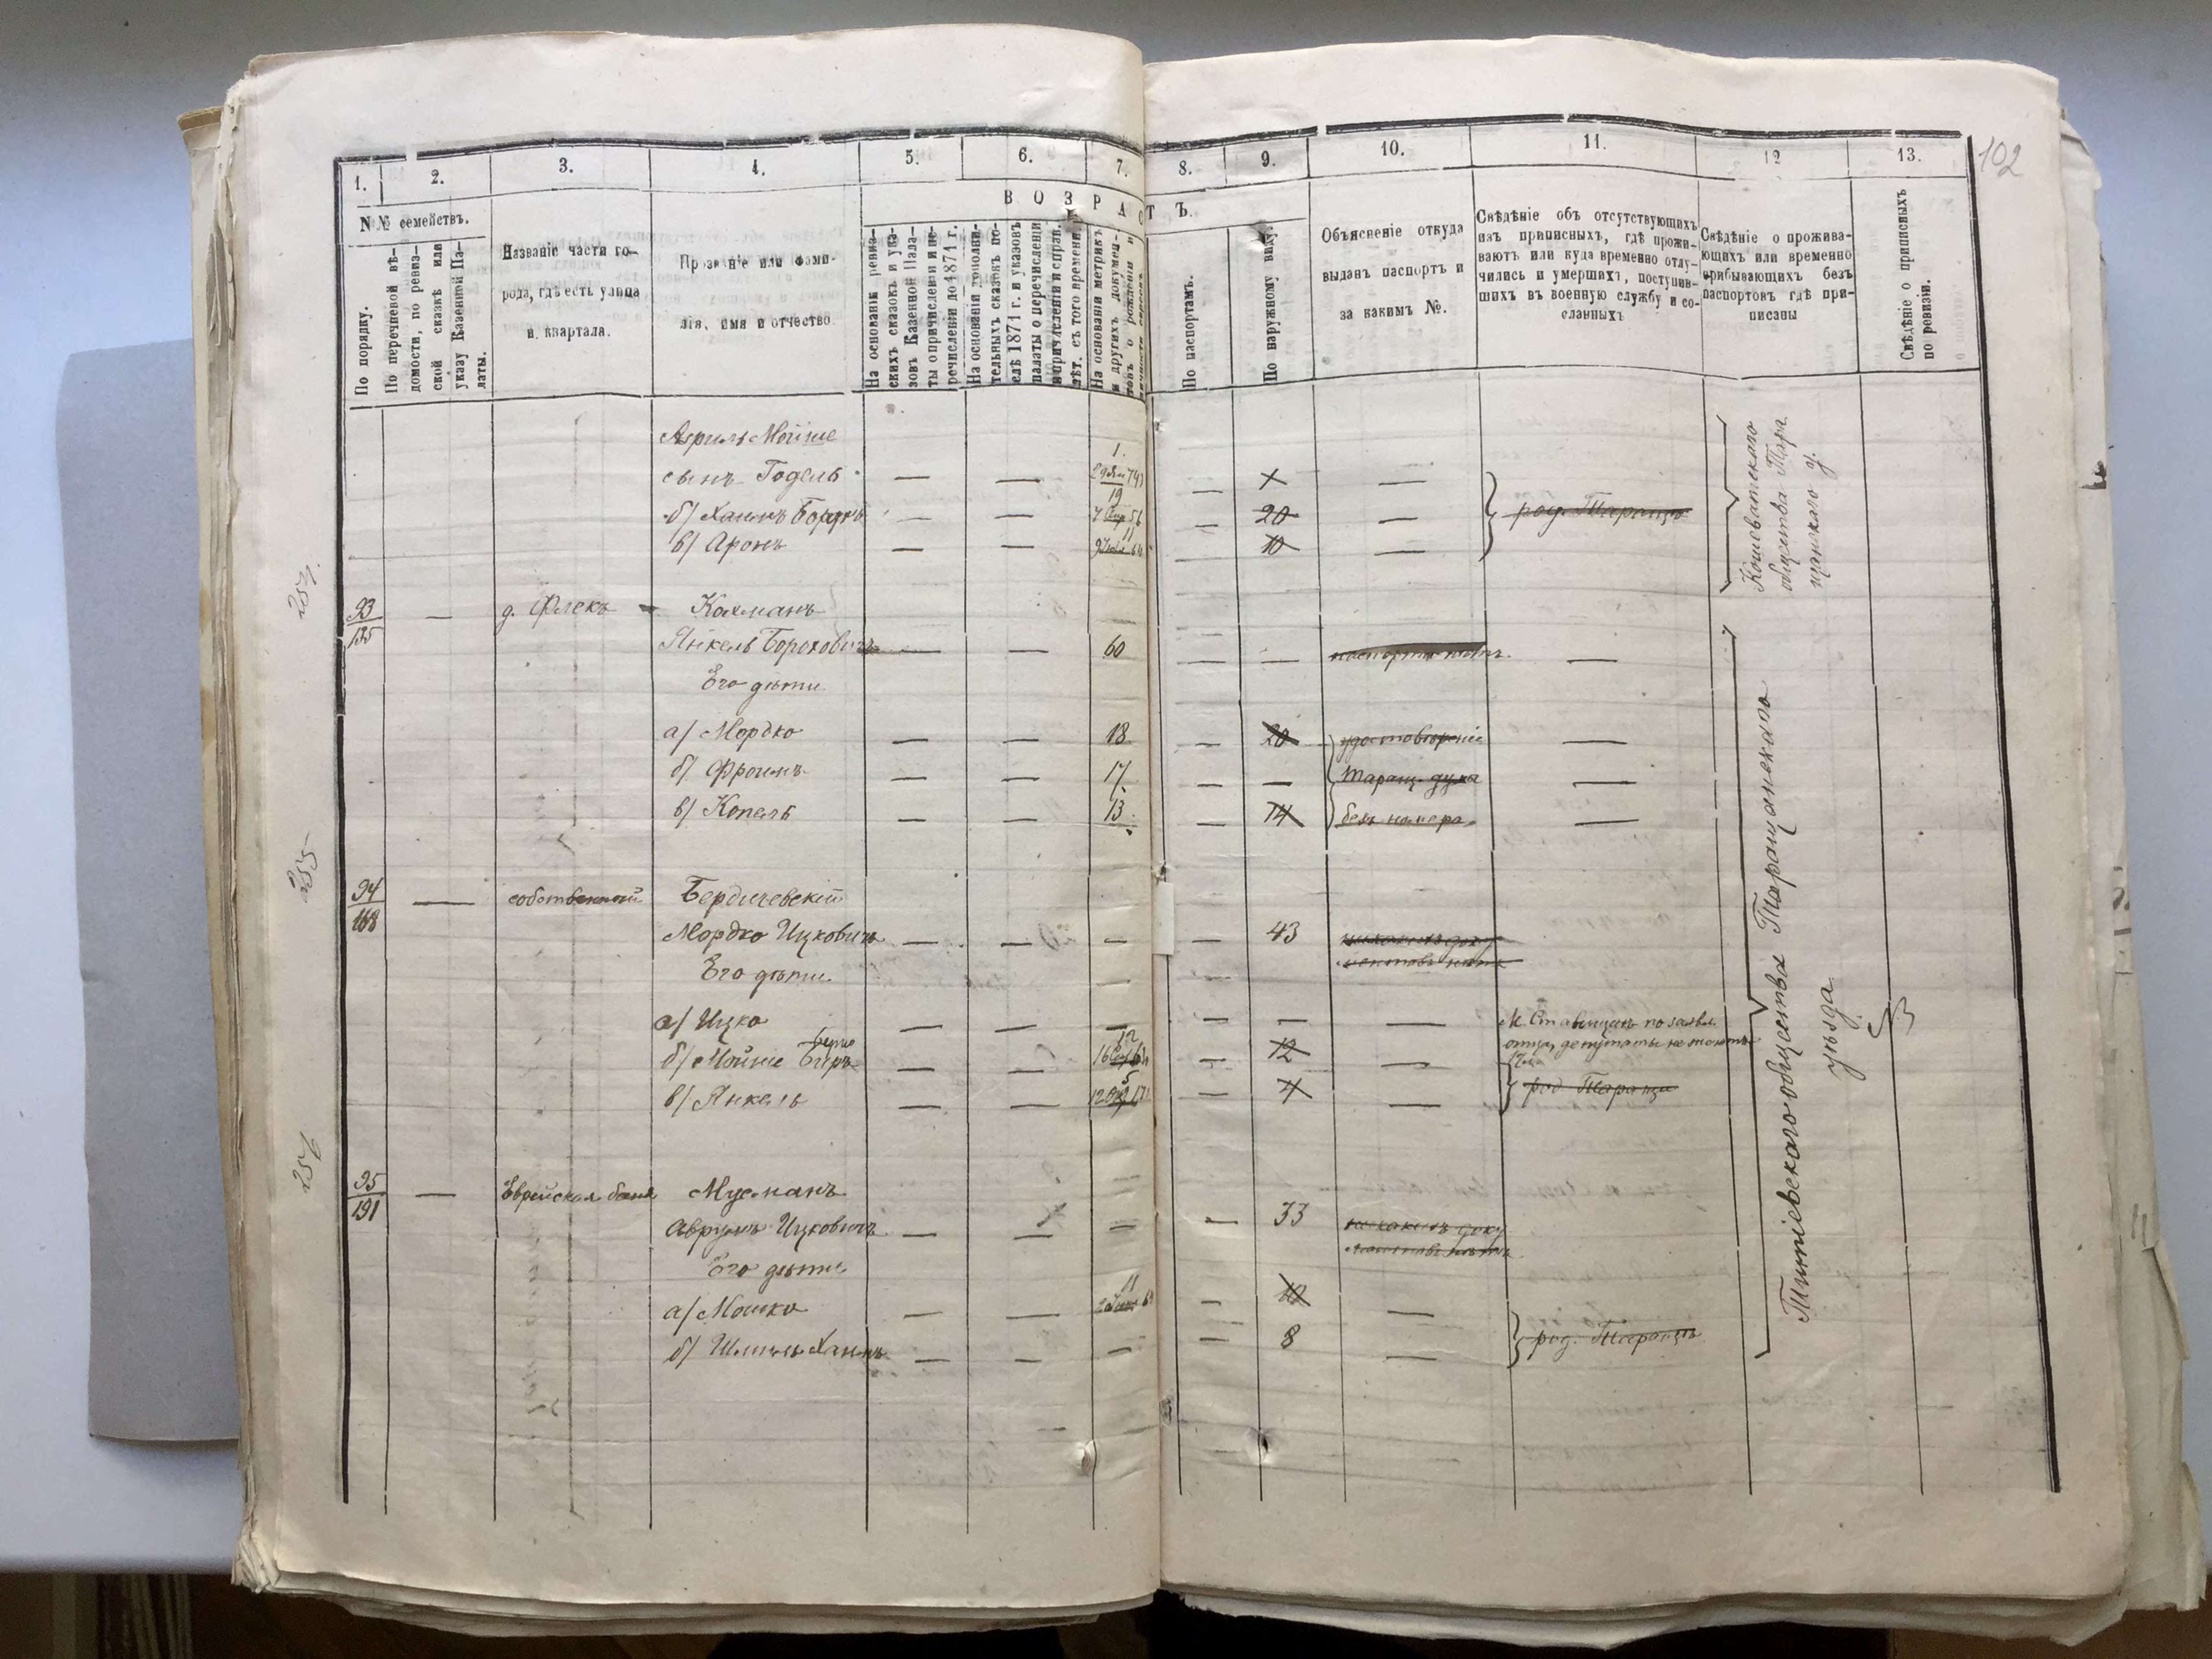 102
1.
2.
3.
4.
5.
6.
7.
8.
9.
10.
11.
12
13.
N № семействъ.
По порядку.
По перечневой вѣ-
домости, по ревиз-
ской сказкѣ или
указу Казенной Па-
латы.
Названіе части го-
рода, гдѣ есть улица
и квартала.
Прозваніе или фами-
лія, имя и отчество.
ВОЗРАСТЪ.
На основаніи ревиз-
скихъ сказокъ и ука-
зовъ Казенной Пала-
ты о причисленіи и пе-
речисленіи до 1871 г.
На основаніи дополни-
тельныхъ сказокъ по-
слѣ 1871 г. и указовъ
палаты о перечисленіи
и причисленіи и справ.
лѣт. съ того времени.
На основаніи метрикъ
и другихъ докумен-
товъ о рожденіи и
По паспортамъ.
По наружному виду.
Объясненіе откуда
выданъ паспортъ и
за какимъ №.
Свѣдѣніе объ отсутствующихъ
изъ приписныхъ, гдѣ прожи-
ваютъ или куда временно отлу-
чились и умершихъ, поступив-
шихъ въ военную службу и со-
сланныхъ
Свѣдѣніе о прожива-
ющихъ или временно
прибывающихъ безъ
паспортовъ гдѣ при-
писаны
Свѣдѣніе о приписныхъ
по ревизіи.
Мойше
1.
сынъ Годель — —
19
б) Хаимъ — — 56 — 20 — род. Тараща
11
в) Аронъ — — — 10 —
Кошеватскаго
общества Тара
щанскаго у.
254
93
135
— д. Флекъ Колманъ
Янкель Бороховичъ — — 60 — — паспорта нѣтъ —
Его дѣти
а) Мордко — — 18 — 20 удостовѣреніе —
б) Фроимъ — — 17 — — Таращ. думы —
в) Копель — — 13 — 14 безъ номера —
255
94
168
— собственный Бердичевскій
Мордко Ицковичъ — — — — 43 никакихъ доку
ментовъ нѣтъ
Его дѣти —
а) Ицко — — — — — — М. Ставищахъ по заявл.
отца, депутаты не
б) Мойше — — 12 — 12 —
5
в) Янкель — — — 4 — род Тараща
Пятигорскаго общества Таращанскаго
уѣзда
256
95
191
— Еврейская баня Мусманъ
Аврумъ Ицковичъ — — — — 33 никакихъ доку
ментовъ нѣтъ
Его дѣти
11
а) Мошко — — — 10 —
б) Шмиль Хаимъ — — — — 8 — род. Тараща